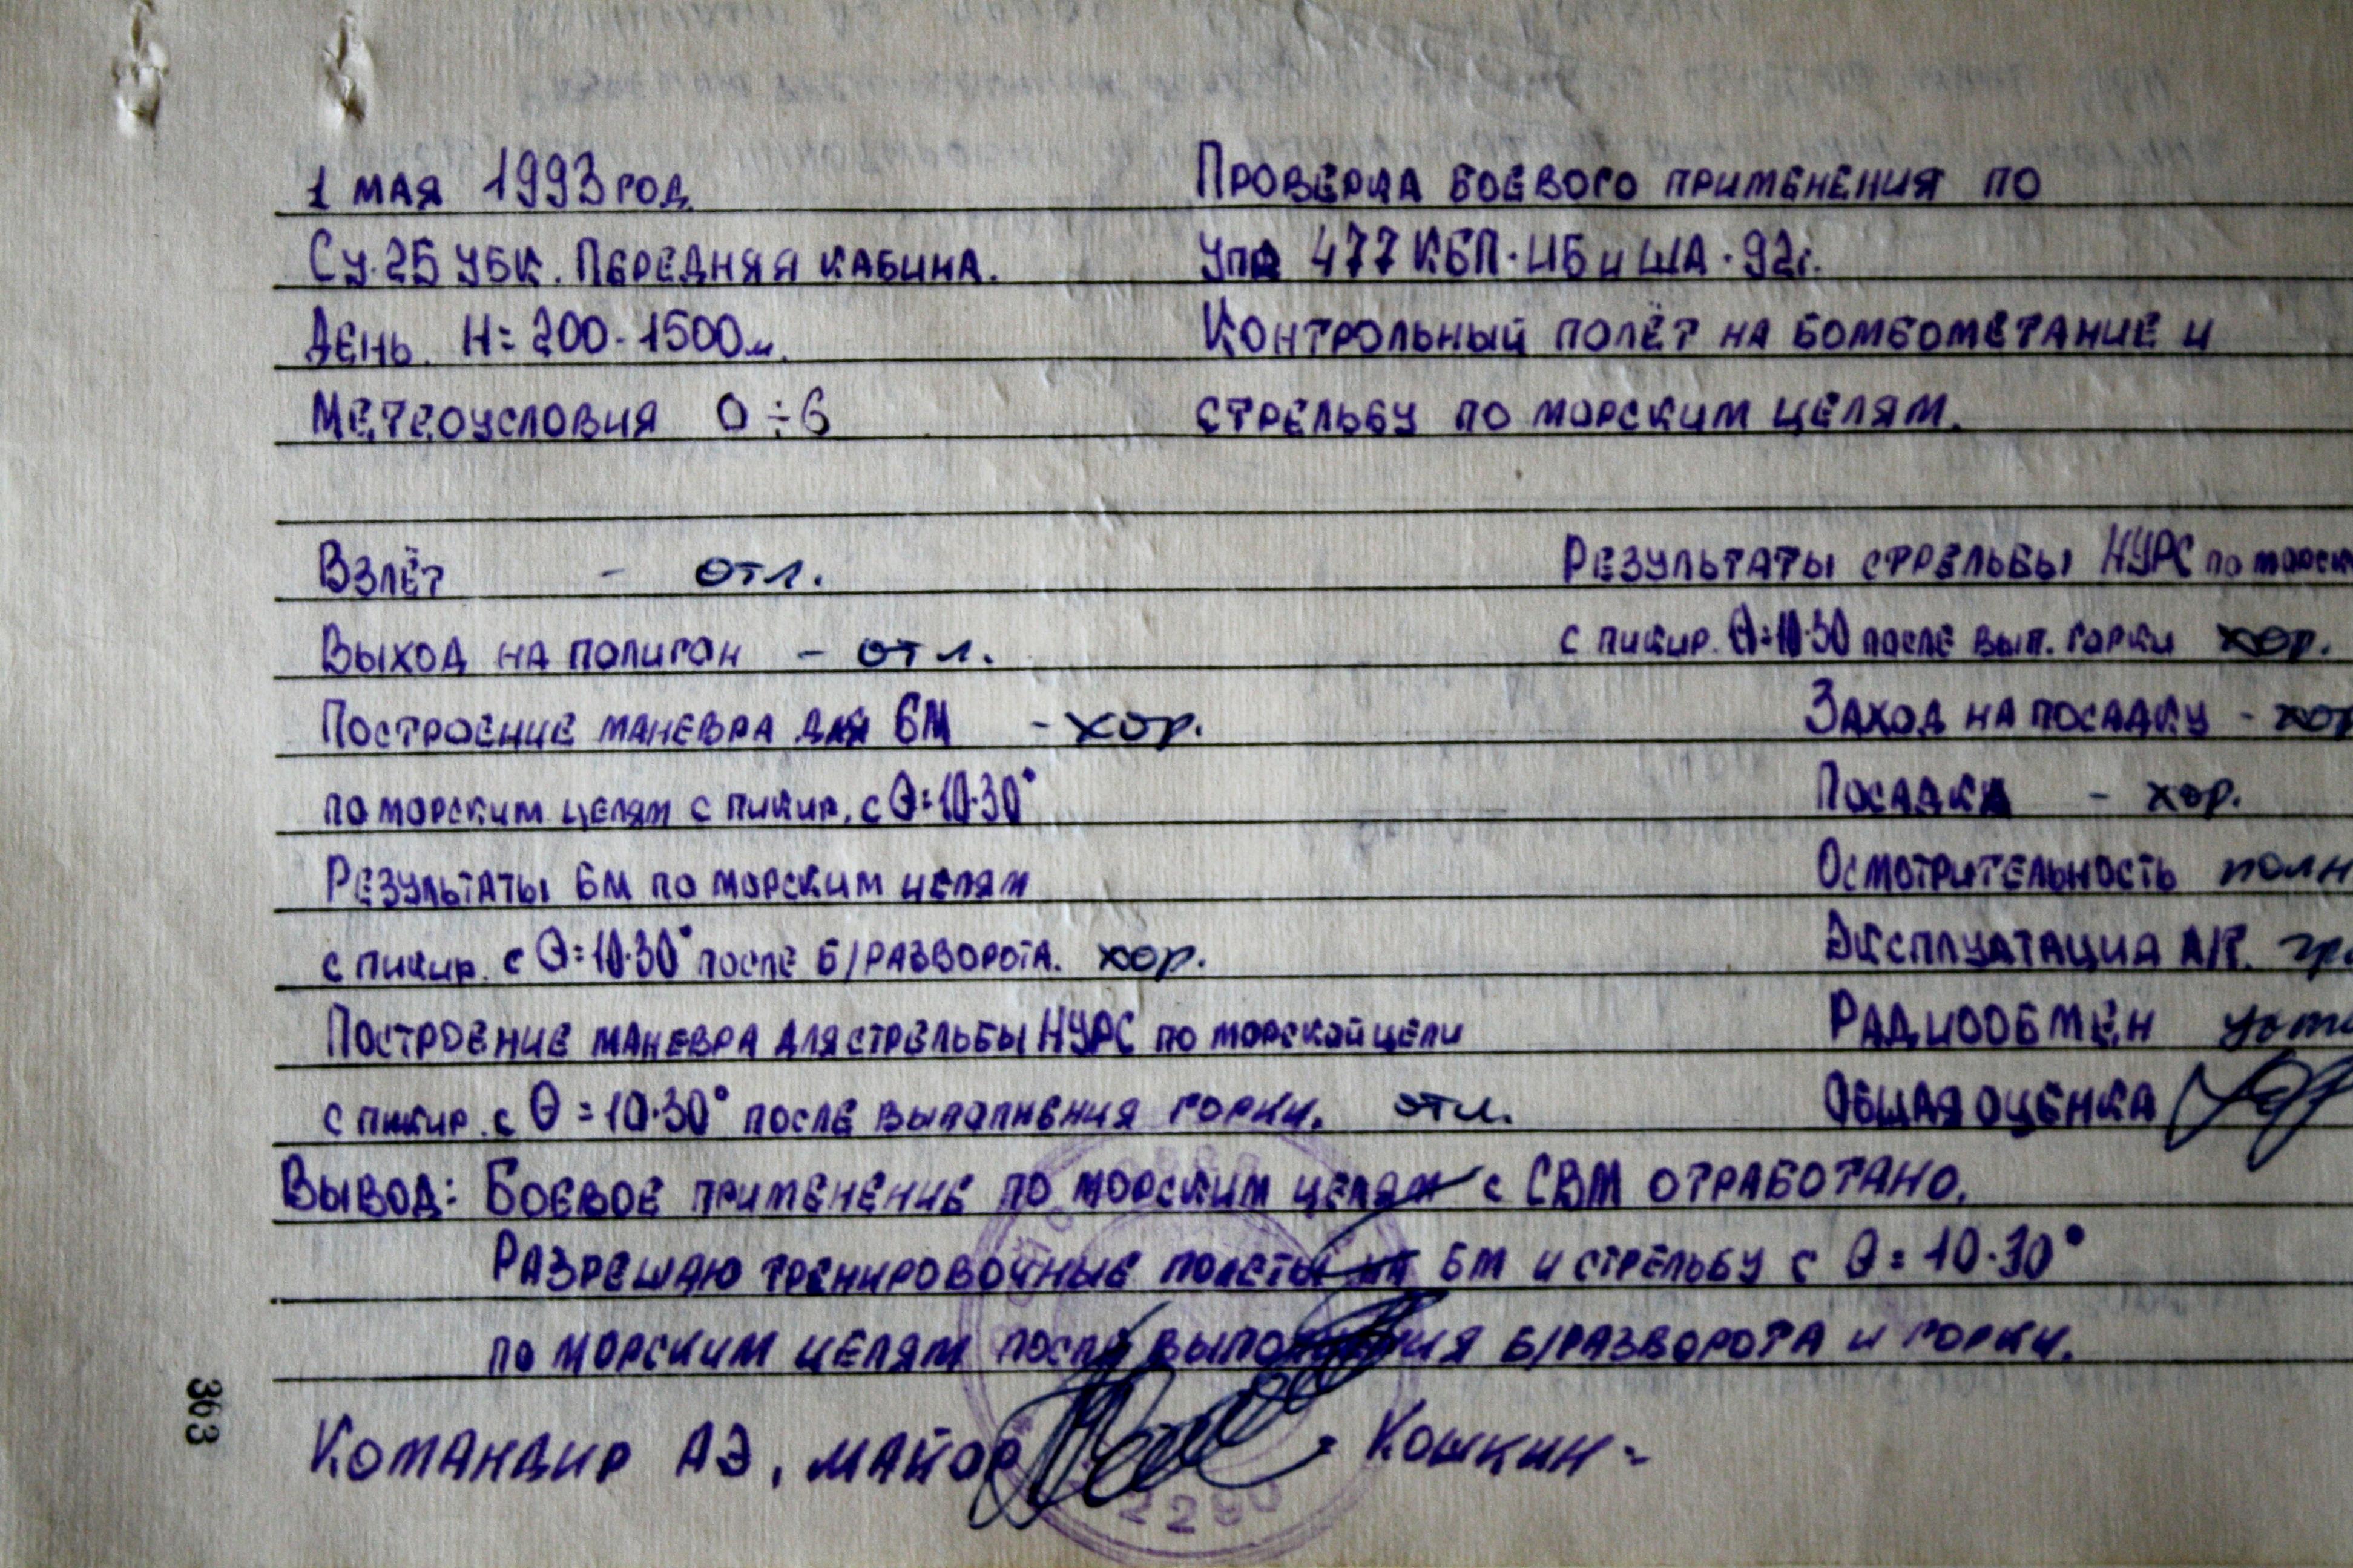 1 мая 1993 год.
Су-25 УБК. Передняя кабина.
День. Н=200-1500м.
Метеоусловия 0÷6
Проверка боевого применения по
упр 477 КБП-ИБ и ША-92г.
Контрольный полёт на бомбометание и
стрельбу по морским целям.
Взлёт - отл.
Выход на полигон - отл.
Построение маневра для БМ - хор.
по морским целям с пикир. с θ=10-30°
Результаты БМ по морским целям
с пикир. с θ=10-30° после б/разворота. хор.
Построение маневра для стрельбы НУРС по морской цели
с пикир. с θ=10-30° после выполнения горки. отл.
Результаты стрельбы НУРС по морск
с пикир. θ=10-30 после вып. горки хор.
Заход на посадку - хор
Посадка - хор.
Осмотрительность полн
Эксплуатация А/Т.
Радиообмен
Общая оценка
Вывод: Боевое применение по морским целям с СВМ отработано.
Разрешаю тренировочные полеты на БМ и стрельбу с θ=10-30°
по морским целям после выполнения б/разворота и горки.
Командир АЭ, майор Кошкин-
363